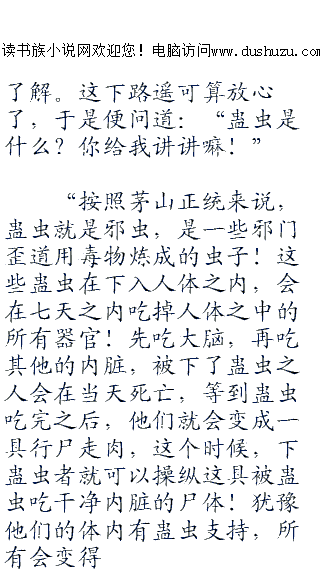 读书族小说网欢迎您！电脑访问www.dushuzu.com
了解。这下路遥可算放心
了，于是便问道：“蛊虫是
什么？你给我讲讲嘛！”
“按照茅山正统来说，
蛊虫就是邪虫，是一些邪门
歪道用毒物炼成的虫子！这
些蛊虫在下入人体之内，会
在七天之内吃掉人体之中的
所有器官！先吃大脑，再吃
其他的内脏，被下了蛊虫之
人会在当天死亡，等到蛊虫
吃完之后，他们就会变成一
具行尸走肉，这个时候，下
蛊虫者就可以操纵这具被蛊
虫吃干净内脏的尸体！犹豫
他们的体内有蛊虫支持，所
有会变得